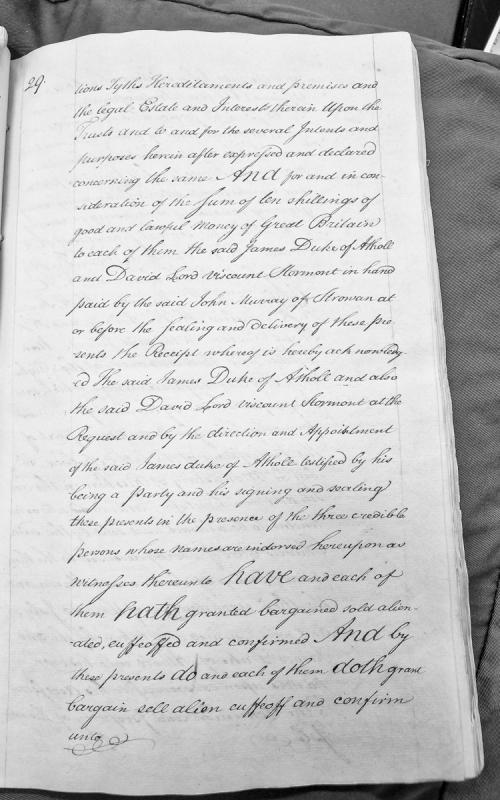 29.
tions Tyths Hereditaments and premises and
the legal Estate and Interest therein Upon the
Trusts and to and for the several Intents and
purposes herein after expressed and declared
concerning the same And for and in con-
sideration of the sum of ten shillings of
good and lawful Money of Great Britain
to each of them the said James Duke of Atholl
and David Lord Viscount Stormont in hand
paid by the said John Murray of Strowan at
or before the sealing and delivery of these pre
sents the Receipt whereof is hereby acknowledg-
ed The said James Duke of Atholl and also
the said David Lord Viscount Stormont at the
Request and by the direction and Appointment
of the said James duke of Atholl testified by his
being a party and his signing and sealing
these presents in the presence of the three credible
persons whose names are indorsed hereupon as
witnesses thereunto have and each of
them hath granted bargained sold alien-
-ated, enffeoffed and confirmed And by
these presents do and each of them doth grant
bargain sell alien enffeoff and confirm
unto